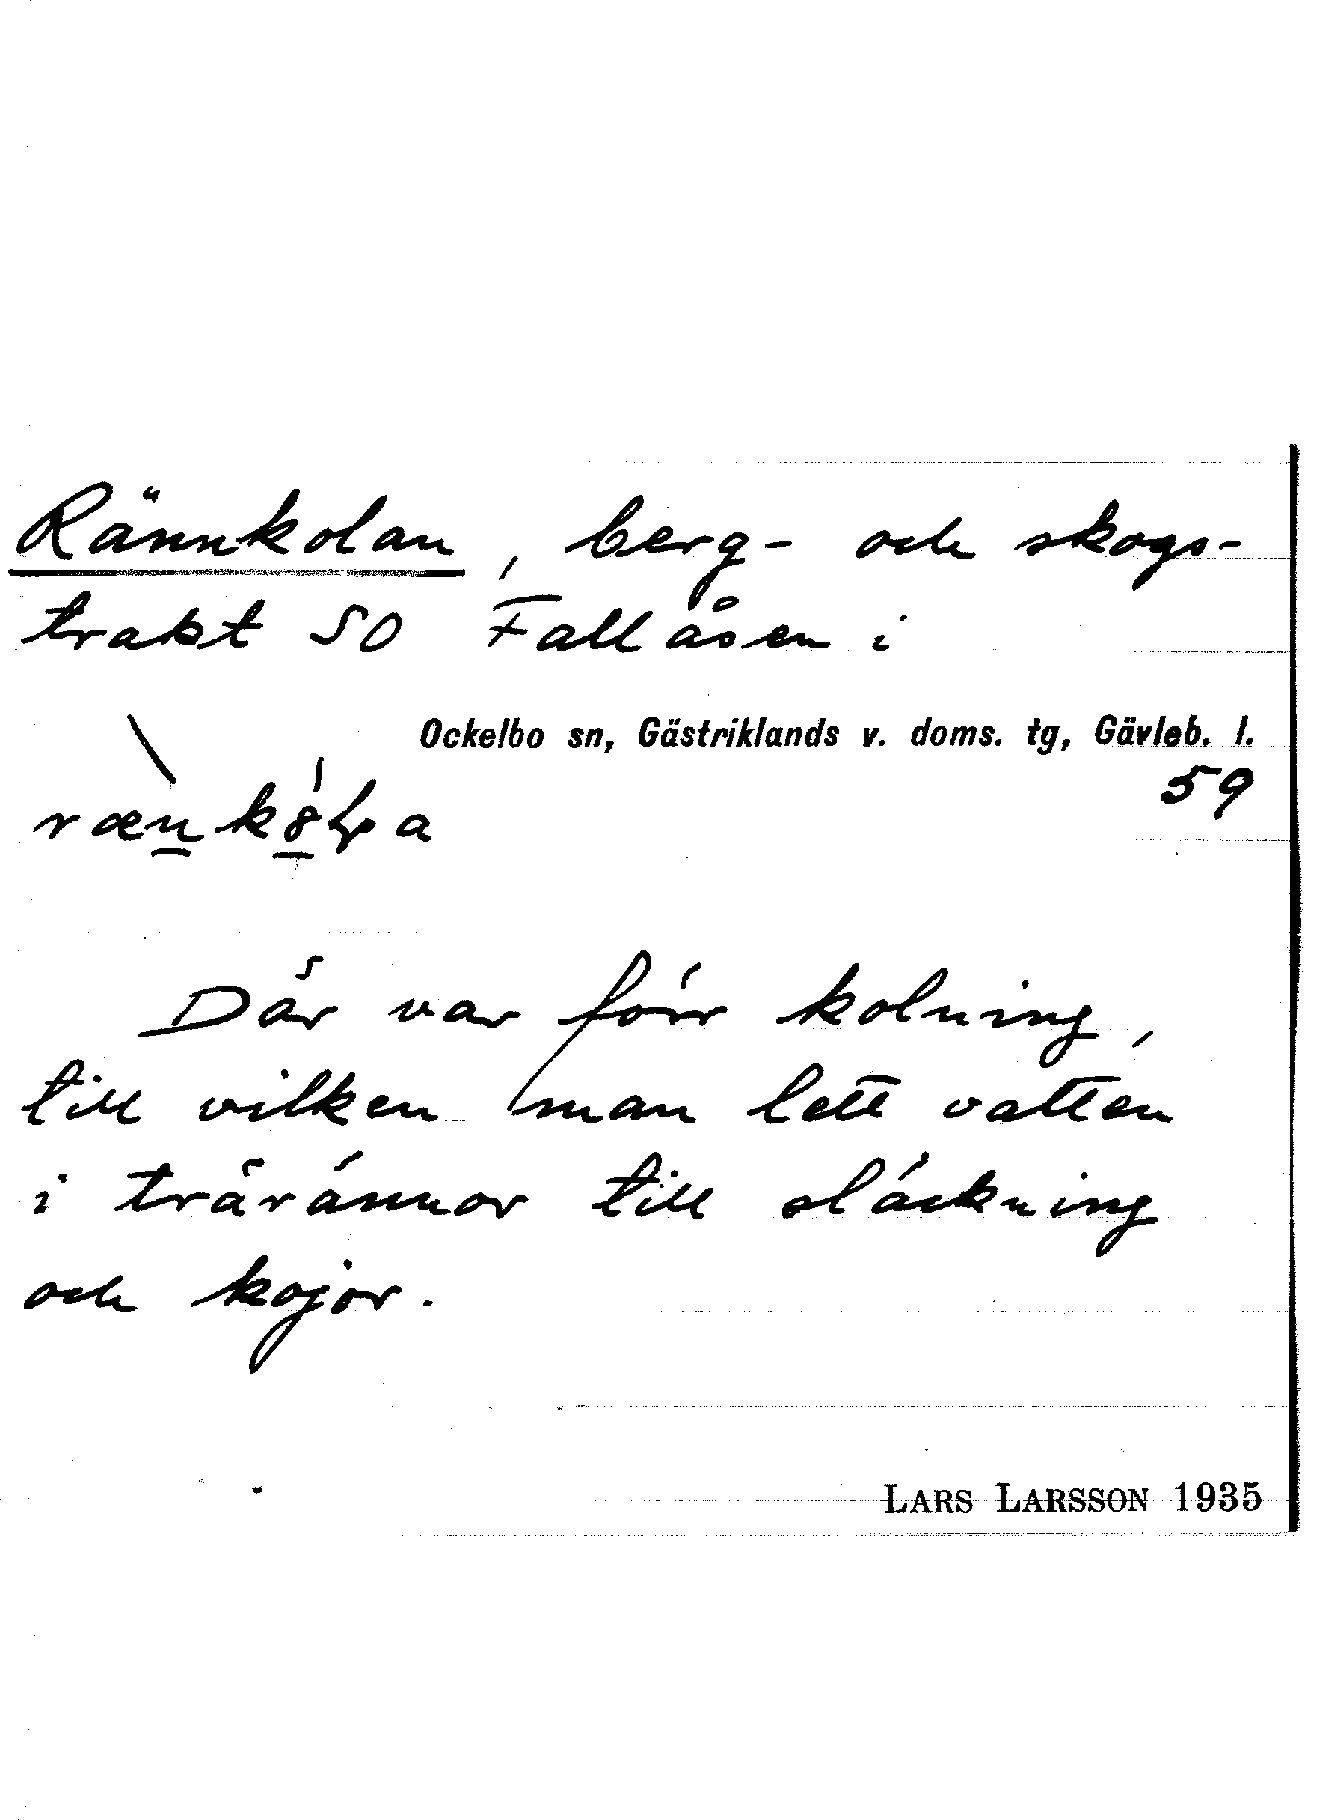 Rännkolan, berg- och skogs-
trakt SO Fallåsen i
Ockelbo sn, Gästriklands v. doms. tg, Gävleb. l.
59
Där var förr kolning,
till vilken man lett vatten
i trärännor till släckning
och kojor.
LARS LARSSON 1935